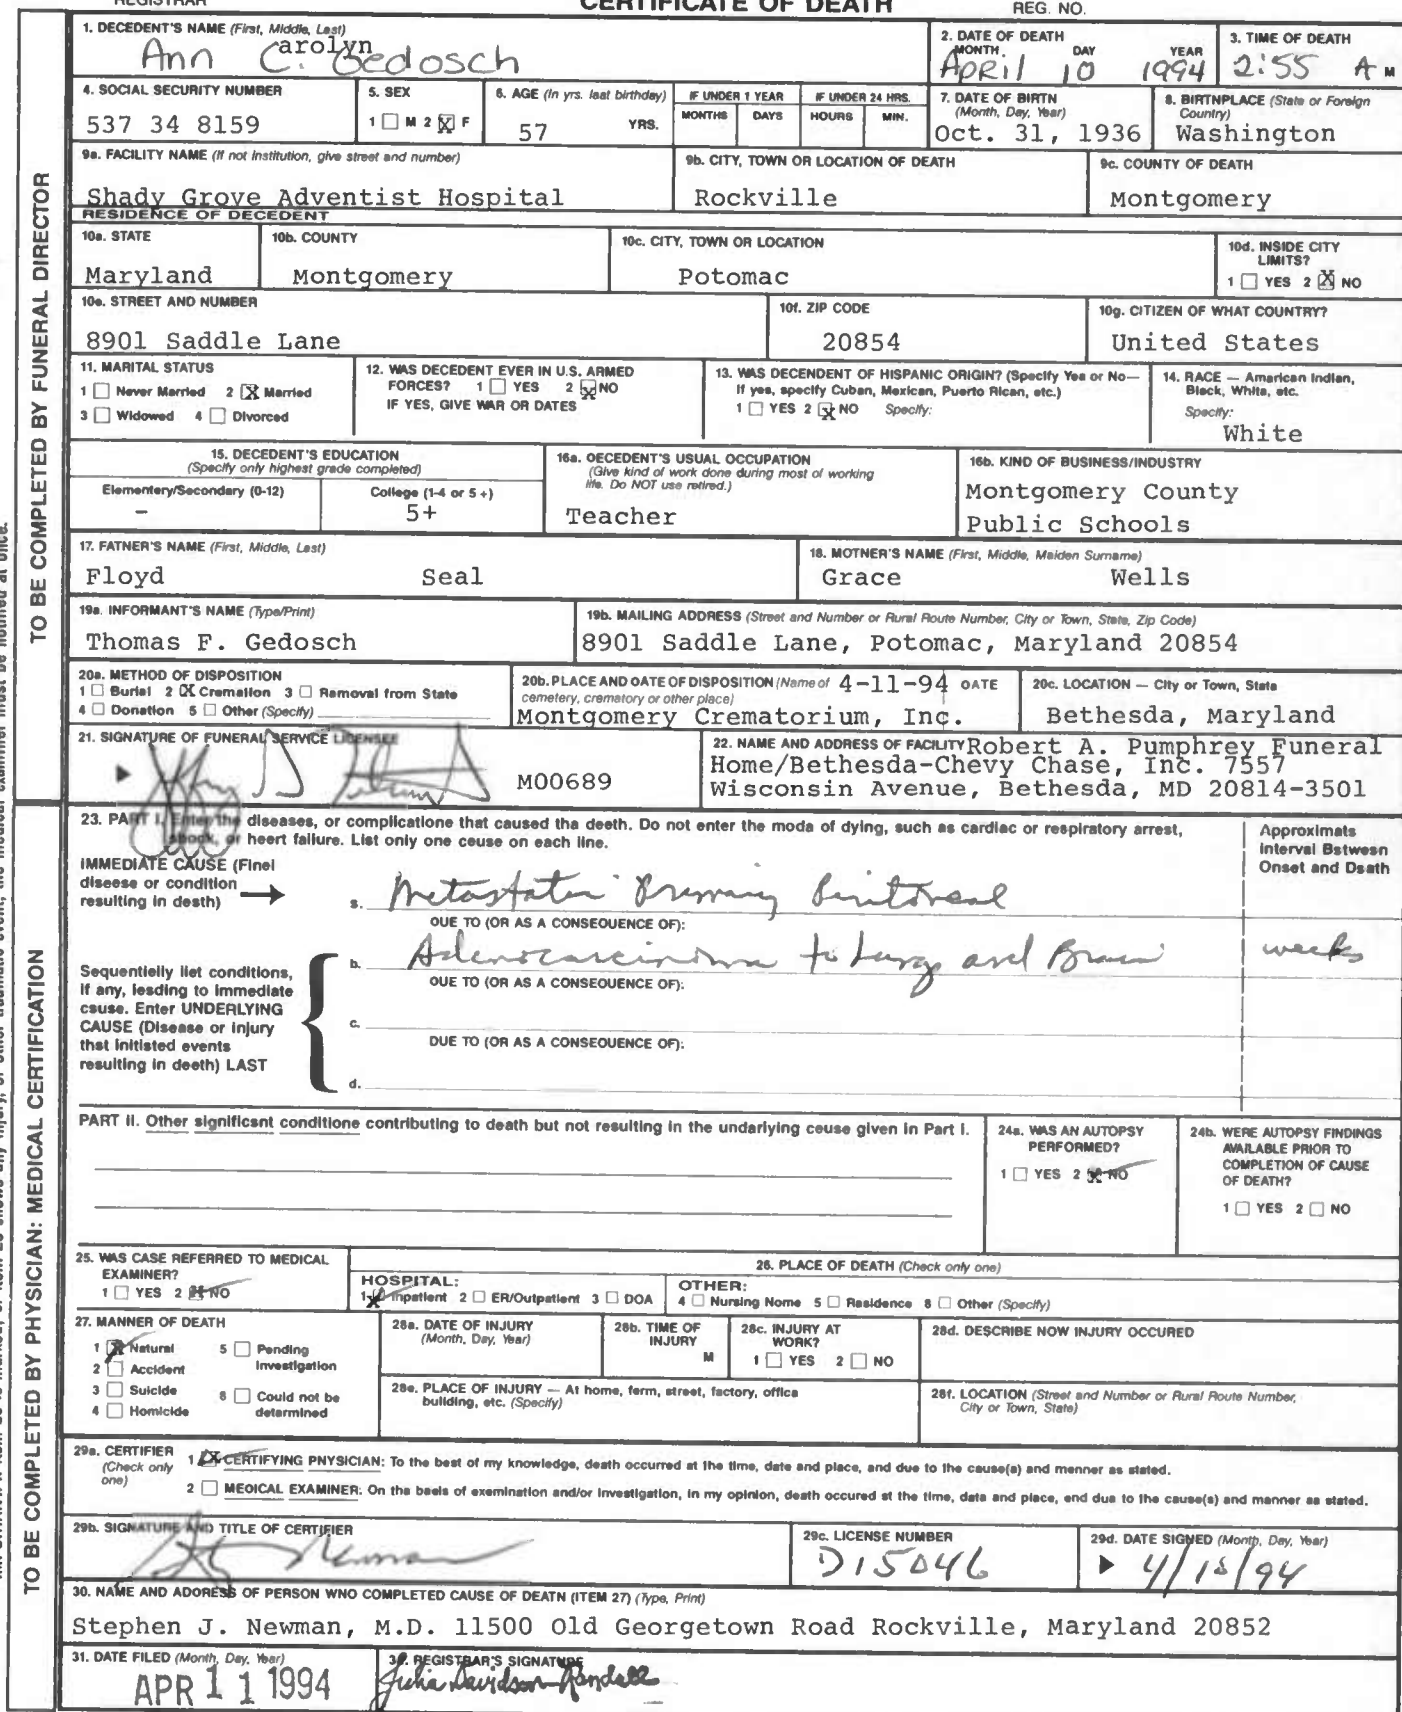 REGISTRAR
CERTIFICATE OF DEATH
REG. NO.
TO BE COMPLETED BY FUNERAL DIRECTOR
1. DECEDENT'S NAME (First, Middle, Last)
Ann Carolyn Gedosch
2. DATE OF DEATH
MONTH DAY YEAR
April 10 1994
3. TIME OF DEATH
2:55 A M
4. SOCIAL SECURITY NUMBER
537 34 8159
5. SEX
1 ☐ M 2 ☒ F
6. AGE (In yrs. last birthday)
57 YRS.
IF UNDER 1 YEAR
MONTHS DAYS
IF UNDER 24 HRS.
HOURS MIN.
7. DATE OF BIRTH
(Month, Day, Year)
Oct. 31, 1936
8. BIRTHPLACE (State or Foreign
Country)
Washington
9a. FACILITY NAME (If not institution, give street and number)
Shady Grove Adventist Hospital
9b. CITY, TOWN OR LOCATION OF DEATH
Rockville
9c. COUNTY OF DEATH
Montgomery
RESIDENCE OF DECEDENT
10a. STATE
Maryland
10b. COUNTY
Montgomery
10c. CITY, TOWN OR LOCATION
Potomac
10d. INSIDE CITY
LIMITS?
1 ☐ YES 2 ☒ NO
10e. STREET AND NUMBER
8901 Saddle Lane
10f. ZIP CODE
20854
10g. CITIZEN OF WHAT COUNTRY?
United States
11. MARITAL STATUS
1 ☐ Never Married 2 ☒ Married
3 ☐ Widowed 4 ☐ Divorced
12. WAS DECEDENT EVER IN U.S. ARMED
FORCES? 1 ☐ YES 2 ☒ NO
IF YES, GIVE WAR OR DATES
13. WAS DECENDENT OF HISPANIC ORIGIN? (Specify Yes or No—
If yes, specify Cuban, Mexican, Puerto Rican, etc.)
1 ☐ YES 2 ☒ NO Specify:
14. RACE — American Indian,
Black, White, etc.
Specify:
White
15. DECEDENT'S EDUCATION
(Specify only highest grade completed)
Elementery/Secondary (0-12)
-
College (1-4 or 5+)
5+
16a. DECEDENT'S USUAL OCCUPATION
(Give kind of work done during most of working
life. Do NOT use retired.)
Teacher
16b. KIND OF BUSINESS/INDUSTRY
Montgomery County
Public Schools
17. FATHER'S NAME (First, Middle, Last)
Floyd Seal
18. MOTHER'S NAME (First, Middle, Maiden Surname)
Grace Wells
19a. INFORMANT'S NAME (Type/Print)
Thomas F. Gedosch
19b. MAILING ADDRESS (Street and Number or Rural Route Number, City or Town, State, Zip Code)
8901 Saddle Lane, Potomac, Maryland 20854
20a. METHOD OF DISPOSITION
1 ☐ Burial 2 ☒ Cremation 3 ☐ Removal from State
4 ☐ Donation 5 ☐ Other (Specify)
20b. PLACE AND DATE OF DISPOSITION (Name of 4-11-94 DATE
cemetery, crematory or other place)
Montgomery Crematorium, Inc.
20c. LOCATION — City or Town, State
Bethesda, Maryland
21. SIGNATURE OF FUNERAL SERVICE LICENSEE
M00689
22. NAME AND ADDRESS OF FACILITY Robert A. Pumphrey Funeral
Home/Bethesda-Chevy Chase, Inc. 7557
Wisconsin Avenue, Bethesda, MD 20814-3501
TO BE COMPLETED BY PHYSICIAN: MEDICAL CERTIFICATION
23. PART I. Enter the diseases, or complications that caused the death. Do not enter the mode of dying, such as cardiac or respiratory arrest,
shock, or heart failure. List only one cause on each line.
Approximate
Interval Between
Onset and Death
IMMEDIATE CAUSE (Final
disease or condition
resulting in death) →
a. Metastatic Primary Peritoneal
DUE TO (OR AS A CONSEQUENCE OF):
b. Adenocarcinoma to Lung and Brain weeks
DUE TO (OR AS A CONSEQUENCE OF):
Sequentially list conditions,
if any, leading to immediate
cause. Enter UNDERLYING
CAUSE (Disease or injury
that initiated events
resulting in death) LAST
c.
DUE TO (OR AS A CONSEQUENCE OF):
d.
PART II. Other significant conditions contributing to death but not resulting in the underlying cause given in Part I.
24a. WAS AN AUTOPSY
PERFORMED?
1 ☐ YES 2 ☒ NO
24b. WERE AUTOPSY FINDINGS
AVAILABLE PRIOR TO
COMPLETION OF CAUSE
OF DEATH?
1 ☐ YES 2 ☐ NO
25. WAS CASE REFERRED TO MEDICAL
EXAMINER?
1 ☐ YES 2 ☒ NO
26. PLACE OF DEATH (Check only one)
HOSPITAL:
1 ☒ Inpatient 2 ☐ ER/Outpatient 3 ☐ DOA
OTHER:
4 ☐ Nursing Home 5 ☐ Residence 6 ☐ Other (Specify)
27. MANNER OF DEATH
1 ☒ Natural 5 ☐ Pending
2 ☐ Accident Investigation
3 ☐ Suicide 6 ☐ Could not be
4 ☐ Homicide determined
28a. DATE OF INJURY
(Month, Day, Year)
28b. TIME OF
INJURY
M
28c. INJURY AT
WORK?
1 ☐ YES 2 ☐ NO
28d. DESCRIBE HOW INJURY OCCURED
28e. PLACE OF INJURY — At home, farm, street, factory, office
building, etc. (Specify)
28f. LOCATION (Street and Number or Rural Route Number,
City or Town, State)
29a. CERTIFIER
(Check only
one)
1 ☒ CERTIFYING PHYSICIAN: To the best of my knowledge, death occurred at the time, date and place, and due to the cause(s) and manner as stated.
2 ☐ MEDICAL EXAMINER: On the basis of examination and/or investigation, in my opinion, death occured at the time, data and place, end due to the cause(s) and manner as stated.
29b. SIGNATURE AND TITLE OF CERTIFIER
Newman
29c. LICENSE NUMBER
D15046
29d. DATE SIGNED (Month, Day, Year)
4/10/94
30. NAME AND ADDRESS OF PERSON WHO COMPLETED CAUSE OF DEATH (ITEM 27) (Type, Print)
Stephen J. Newman, M.D. 11500 Old Georgetown Road Rockville, Maryland 20852
31. DATE FILED (Month, Day, Year)
APR 11 1994
32. REGISTRAR'S SIGNATURE
Julia Davidson-Randall